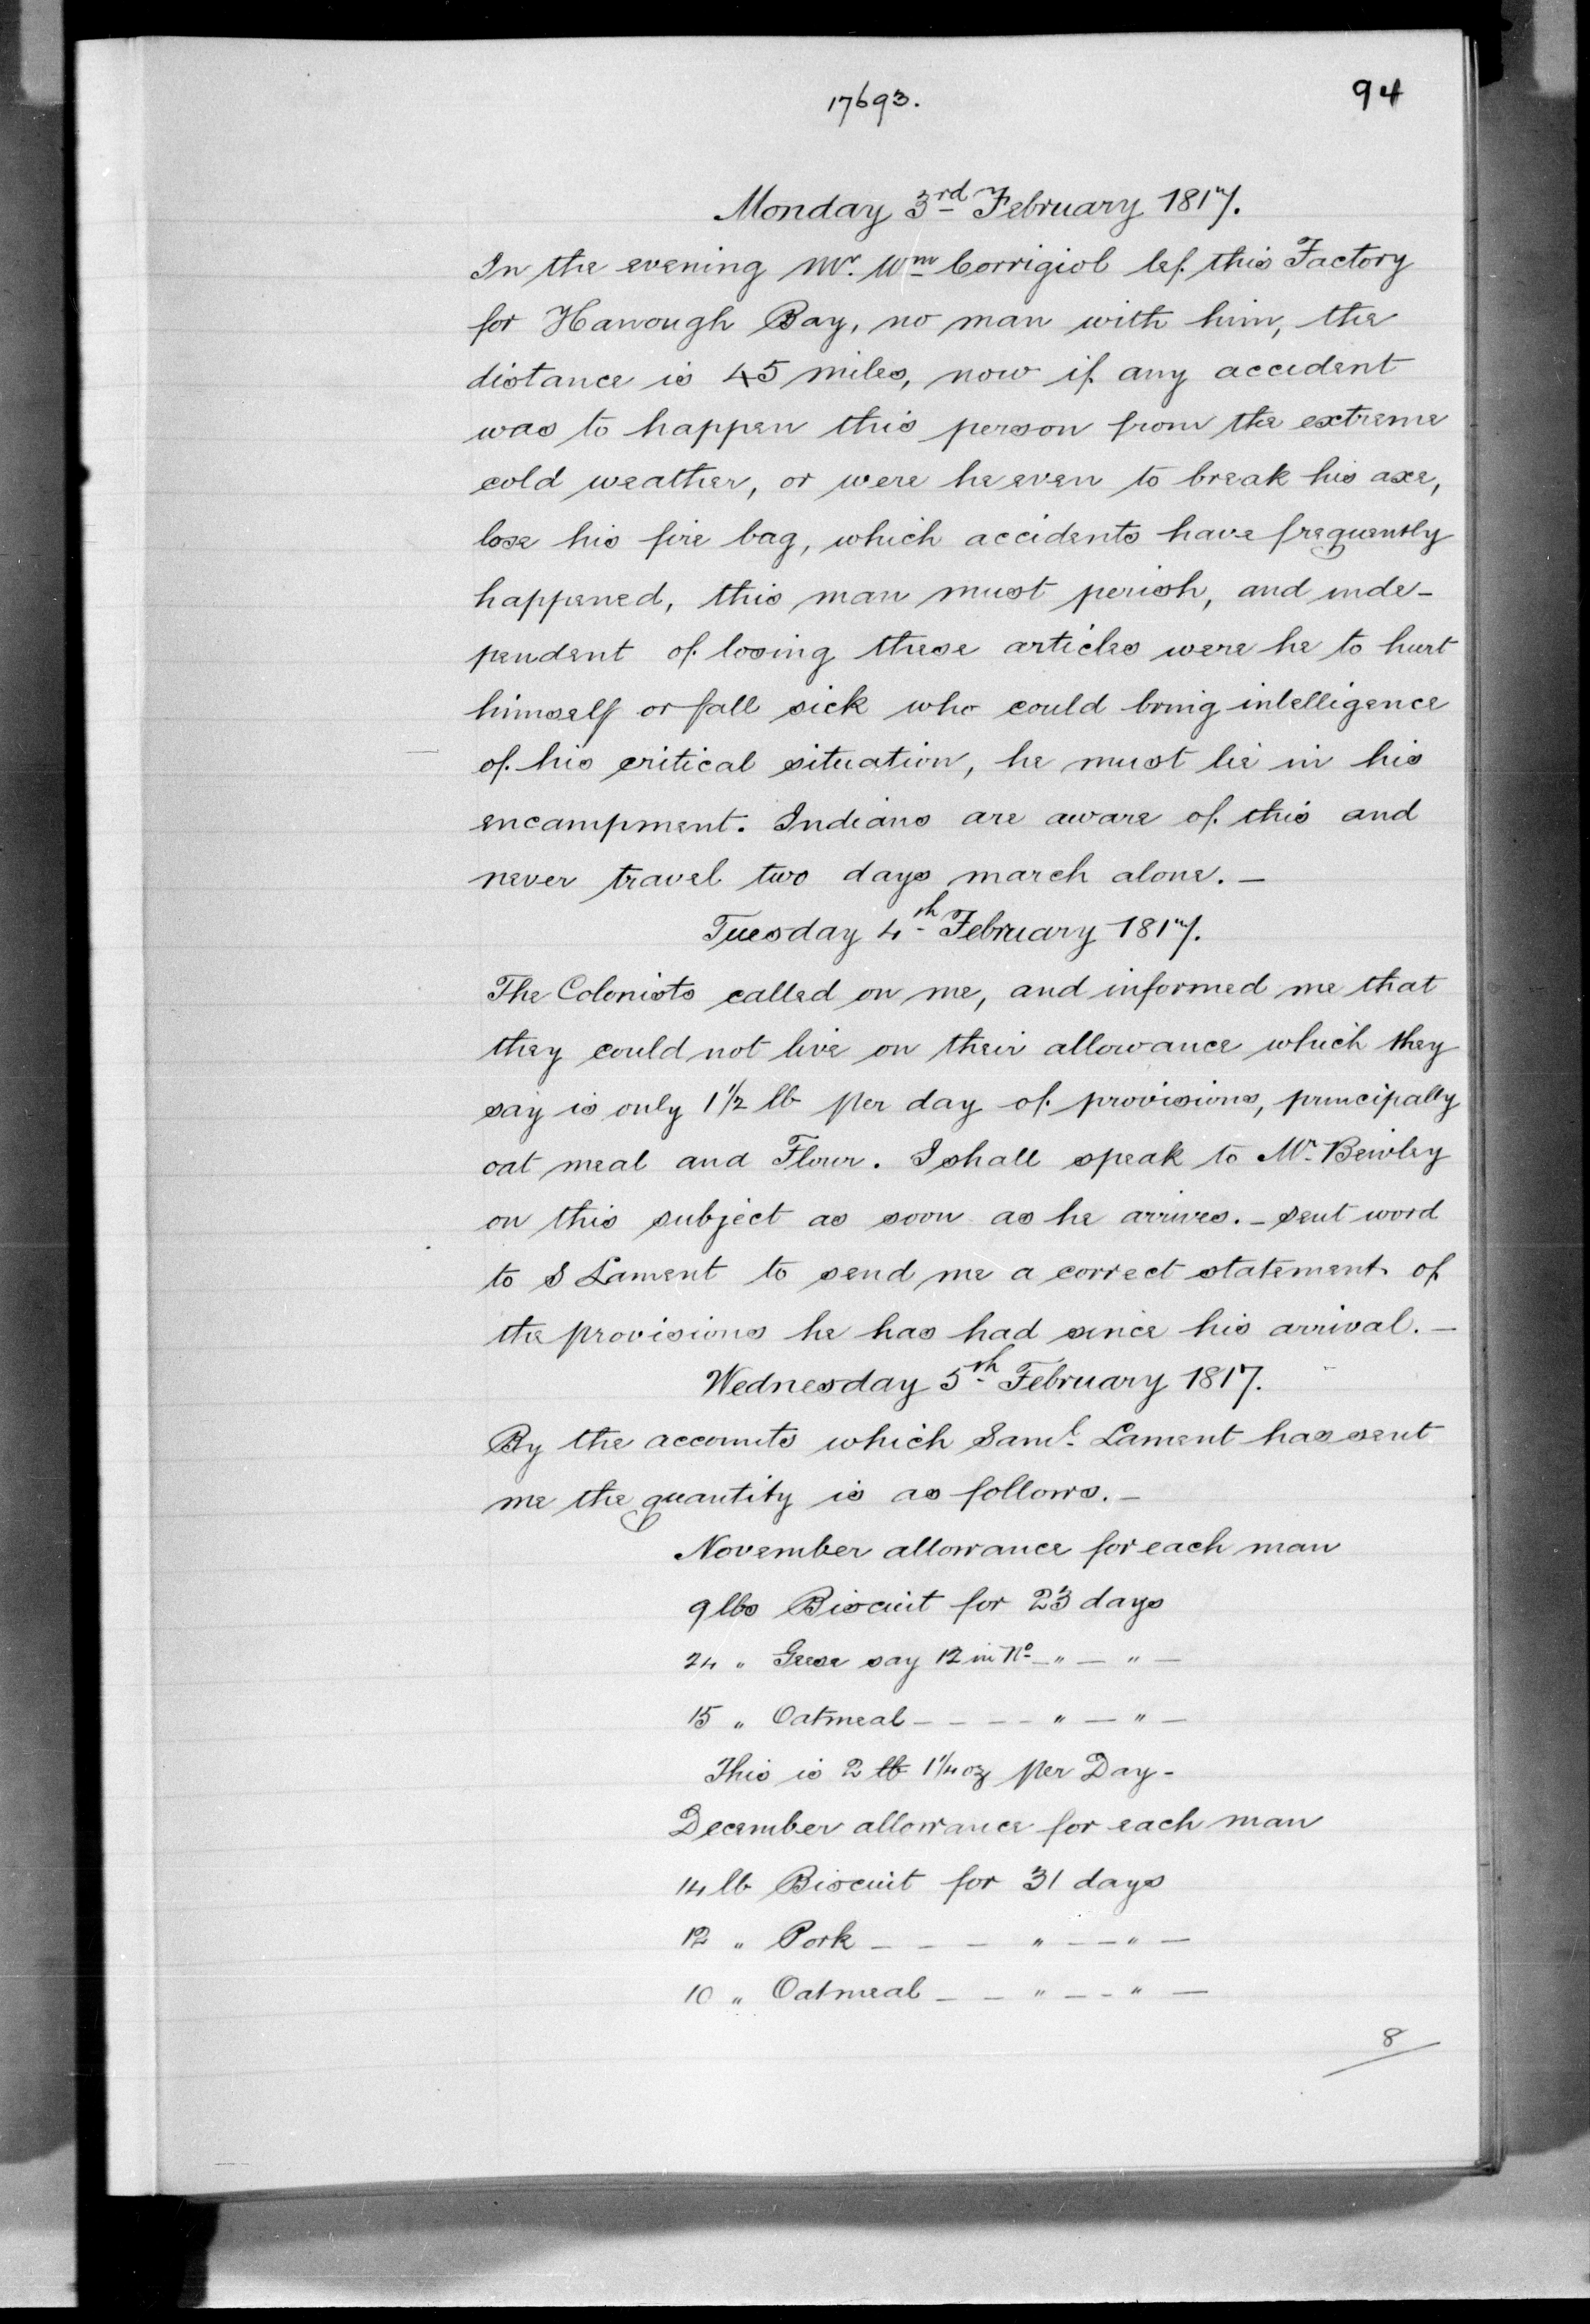 17693.
94
Monday 3rd February 1817.
In the evening Mr. Wm Corrigiol lef this Factory
for Hanough Bay, no man with him, the
distance is 45 miles, now if any accident
was to happen this person from the extreme
cold weather, or were he even to break his axe,
lose his fire bag, which accidents have frequently
happened, this man must perish, and inde-
pendent of losing these articles were he to hurt
himself or fall sick who could bring intelligence
of his critical situation, he must lie in his
encampment. Indians are aware of this and
never travel two days march alone. —
Tuesday 4th February 1817.
The Colonists called on me, and informed me that
they could not live on their allowance which they
say is only 1 1/2 lb per day of provisions, principally
oat meal and Flour. I shall speak to Mr Bewley
on this subject as soon as he arrives. — sent word
to S Lament to send me a correct statement of
the provisions he has had since his arrival. —
Wednesday 5th February 1817.
By the accounts which Saml. Lament has sent
me the quantity is as follows. —
November allowance for each man
9 lbs Biscuit for 23 days
24 " Geese say 12 in No — " — " —
15 " Oatmeal — — — — " — " —
This is 2 lb 1 1/4 oz per Day -
December allowance for each man
14 lb Biscuit for 31 days
12 " Pork — — — " — — " —
10 " Oatmeal — — " — - " —
8